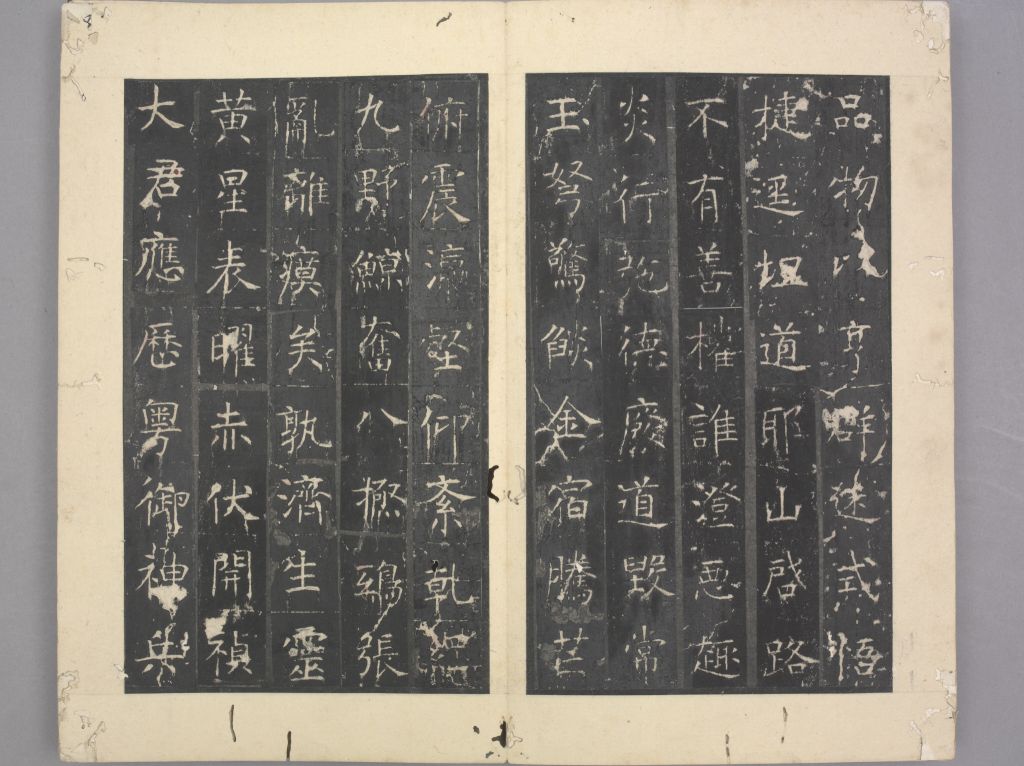 品物以亨群迷式悟
捷逕坦道耶山啓路
不有善權誰澄惡趣
炎行弛德廢道毀常
玉弩驚燄金宿騰芒
俯震瀛壑仰紊乾綱
九野鯨奮八極鴟張
亂離瘼矣孰濟生靈
黃星表曜赤伏開禎
大君應歷粵御神兵